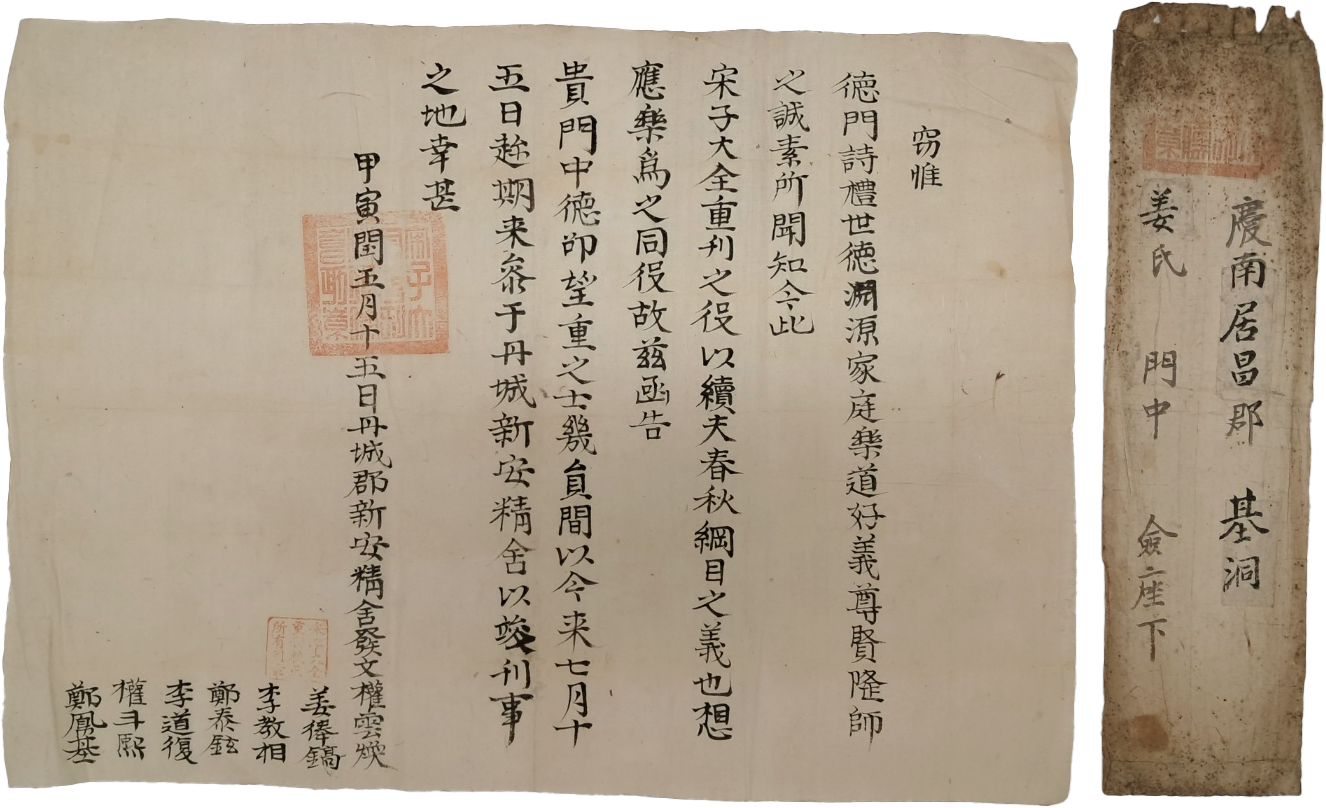 窃惟
德門詩禮世德淵源家庭樂道好義尊賢隆師
之誠素所聞知今此
宋子大全重刊之役以續夫春秋綱目之義也想
應樂爲之同役故玆函告
貴門中德卲望重之士幾員間以今来七月十
五日趁期来叅于丹城新安精舍以竣刊事
之地幸甚
甲寅閏五月十五日丹城郡新安精舍發文權雲煥
姜俸鎬
李教相
鄭泰鉉
李道復
權斗熙
鄭鳳基
慶南居昌郡 基洞
姜氏 門中 僉座下